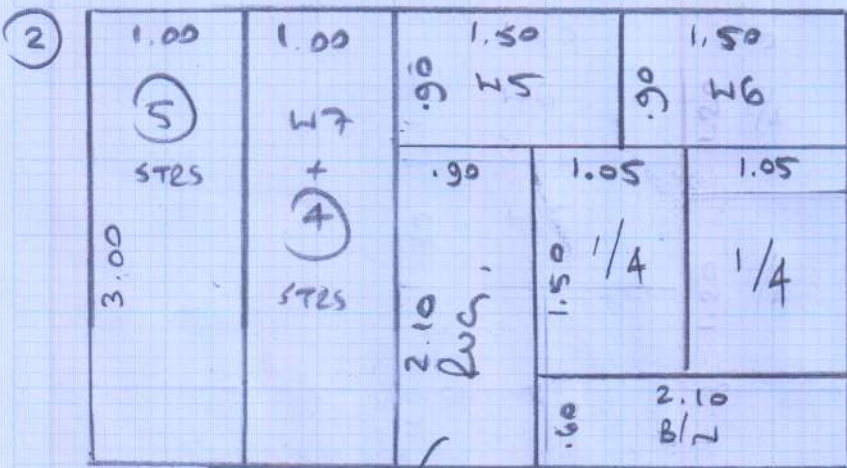 2
1.00
5
STRS
3.00
1.00
W7
+
4
STRS
1.50
.90
W5
1.50
.90
W6
.90
2.10
RUG.
1.05
1.50
1/4
1.05
1/4
2.10
.60